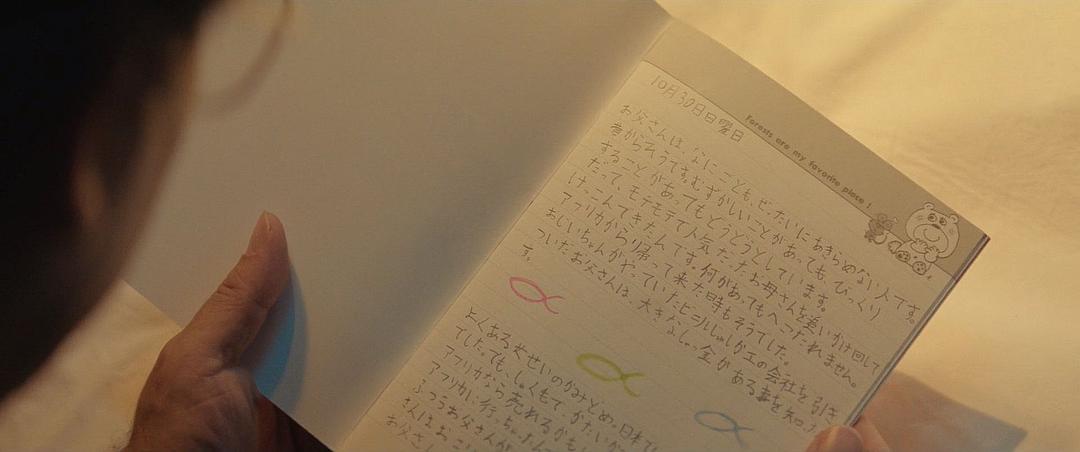 Forests are my favorite place!
10月30日日曜日
お父さんは、なにごとも、ぜったいにあきらめない人です。
昔からそうです。むずかしいことがあっても、びっくり
することがあってもどうどうとしています。
だって、モテモテで人気だったお母さんを追いかけ回して
けっこんできたんです。何があってもへこたれません。
アフリカから帰って来た時もそうでした。
おじいちゃんがやっていたビニルじゅしか工の会社を引き
ついだお父さんは、大きなしゃっ金がある事を知っ
す。
よくあるやせいのか
でした。でも、しゅくもて、かたい
アフリカなら売れるかも
アフリカに行っちゃったん
ふつうお父さんが
さんはおこ
お父さん